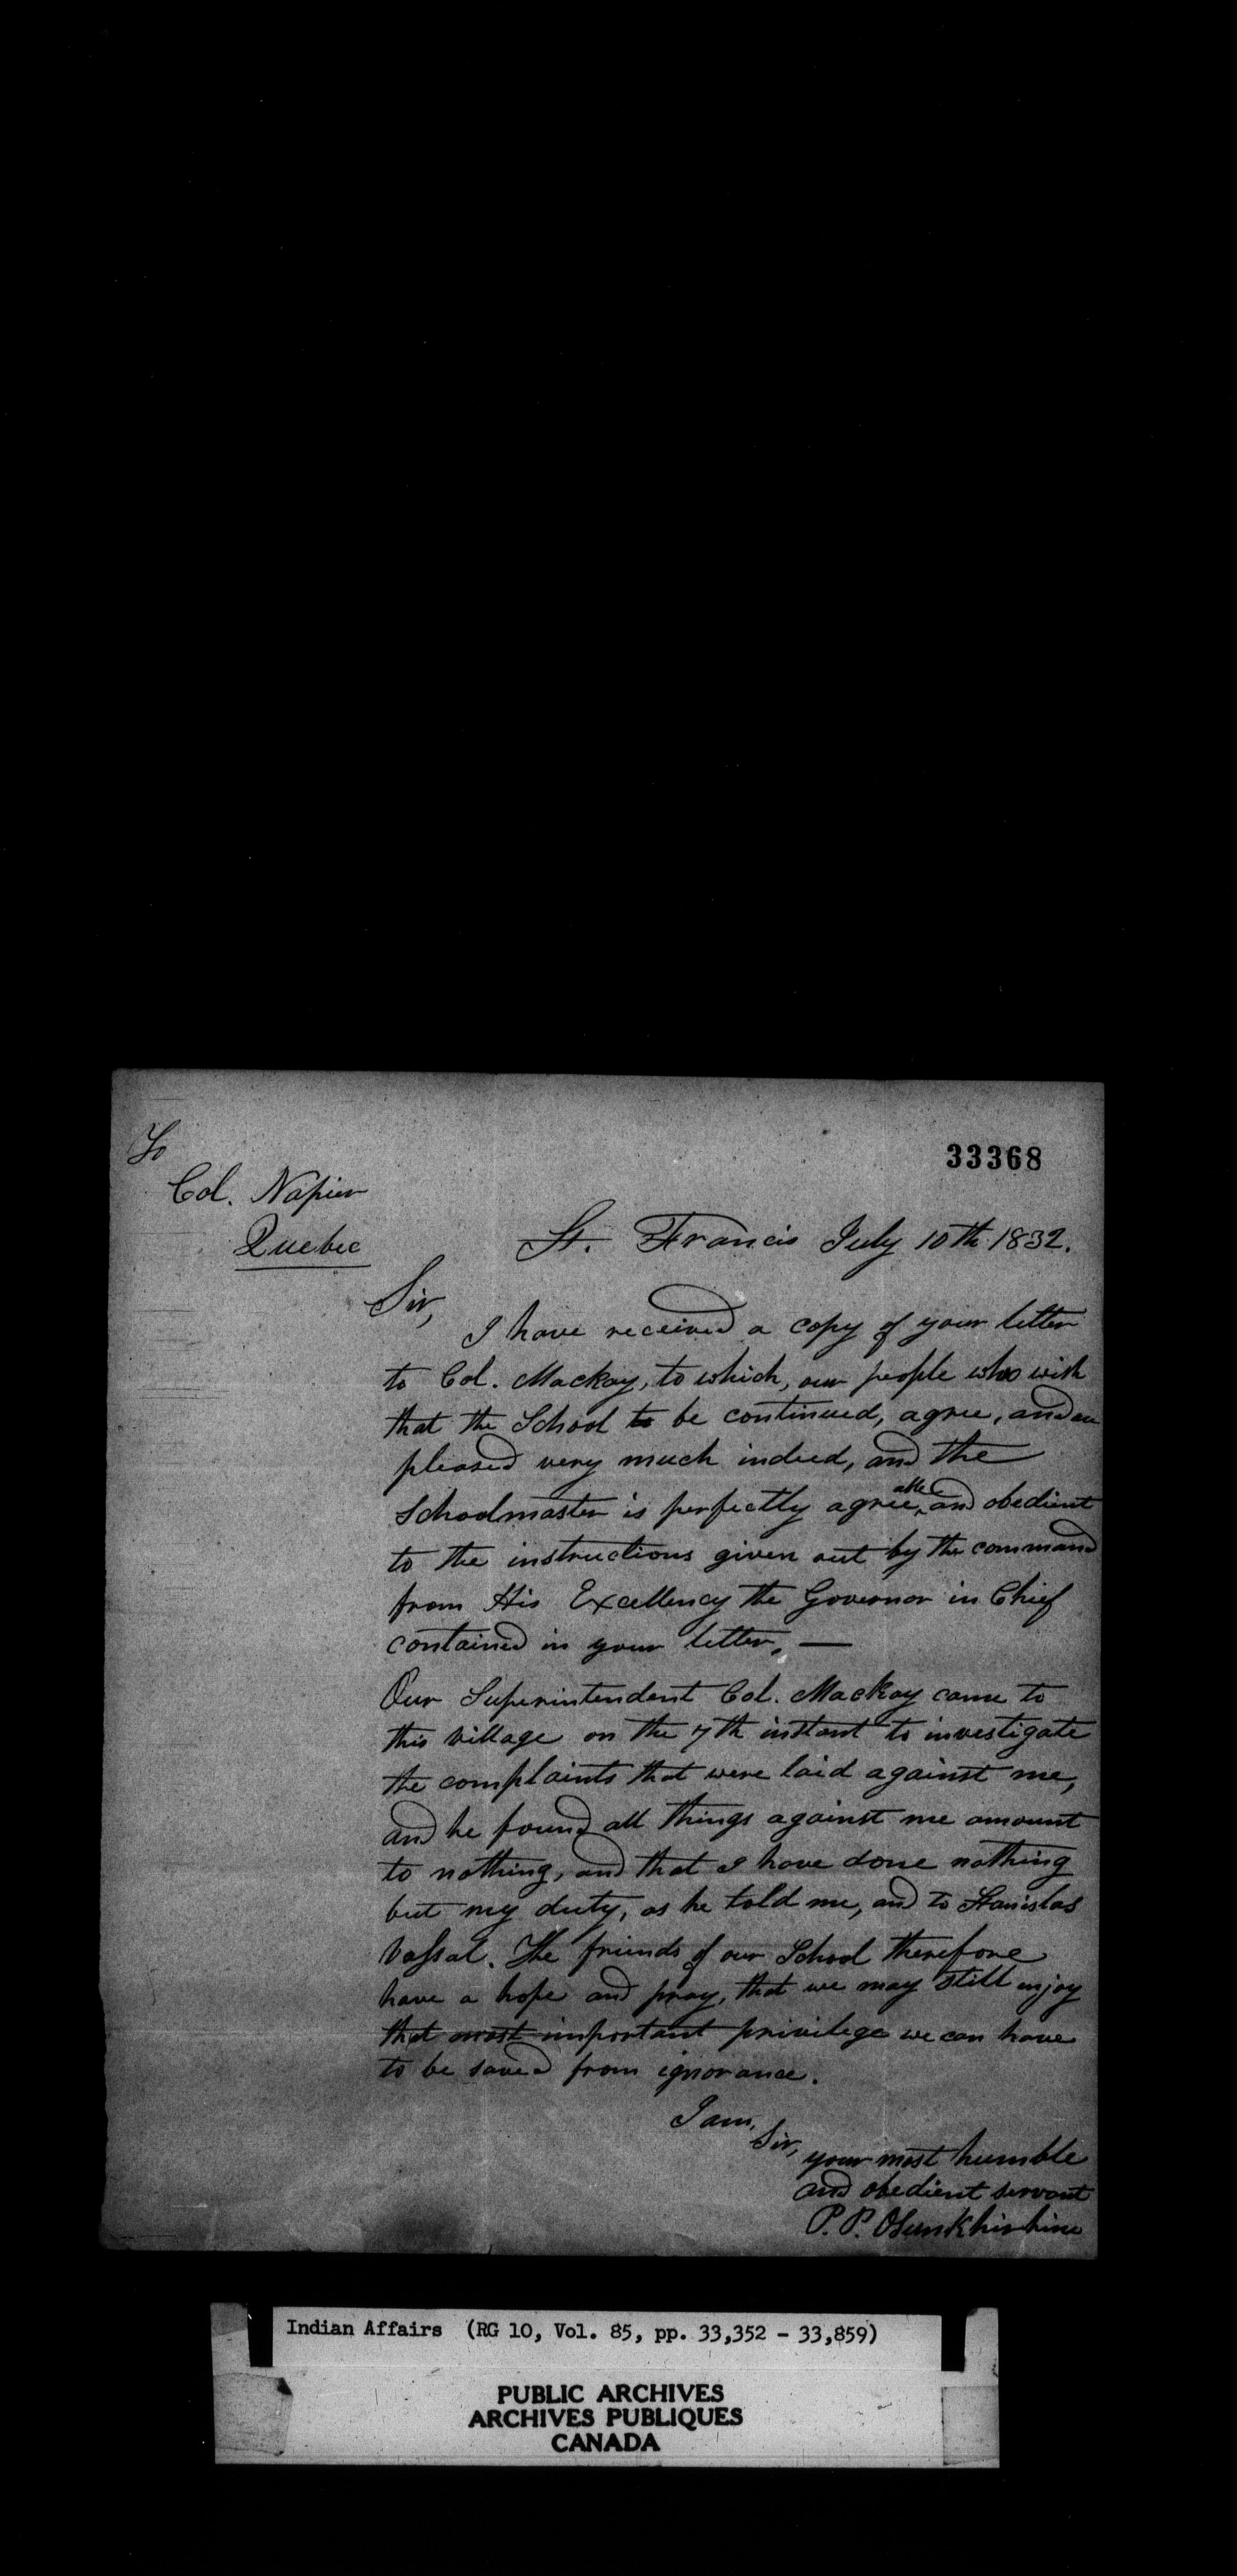 To
33368
Col. Napier
Quebec
St. Francis July 10th 1832.
Sir,
I have received a copy of your letter
to Col. Mackay, to which, our people who wish
that the School to be continued, agree, and are
pleased very much indeed, and the
Schoolmaster is perfectly agreeable and obedient
to the instructions given out by the command
from His Excellency the Governor in Chief
contained in your letter. —
Our Superintendent Col. Mackay came to
this village on the 7th instant to investigate
the complaints that were laid against me,
and he found all things against me amount
to nothing, and that I have done nothing
but my duty, as he told me, and to Stanislas
Vassal. The friends of our School therefore
have a hope and pray, that we may still enjoy
that most important privilege we can have
to be saved from ignorance.
I am,
Sir,
your most humble
and obedient servant
P. P. Osunkhirhine
Indian Affairs (RG 10, Vol. 85, pp. 33,352 - 33,859)
PUBLIC ARCHIVES
ARCHIVES PUBLIQUES
CANADA